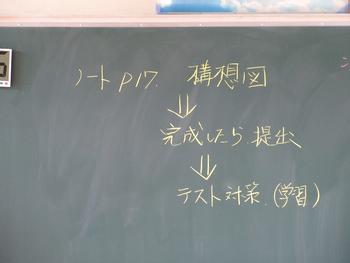 ノート P17. 構想図
⇓
完成したら.提出
⇓
テスト対策.(学習)